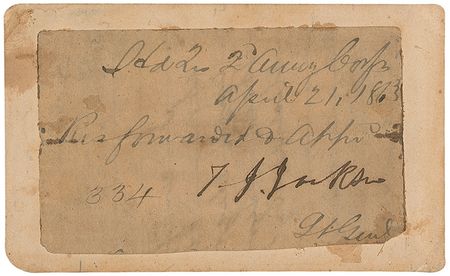 Hd Qrs 2d Army Corps
April 21, 1863
Res. forwarded & Appd
334 T. J. Jackson
Lt Genl